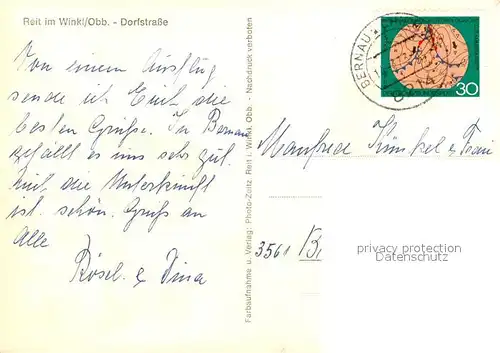 Reit im Winkl/Obb. - Dorfstraße
Von einem Ausflug
sende ich Euch die
besten Grüße. In Bernau
gefällt es uns sehr gut.
die Unterkunft
ist schön. Gruß an
Alle
Rösel. & Dina
Farbaufnahme u. Verlag: Photo-Zeitz, Reit i. Winkl, Obb. - Nachdruck verboten
BERNAU
30
Manfred Künkel & Frau
3561
privacy protection
Datenschutz